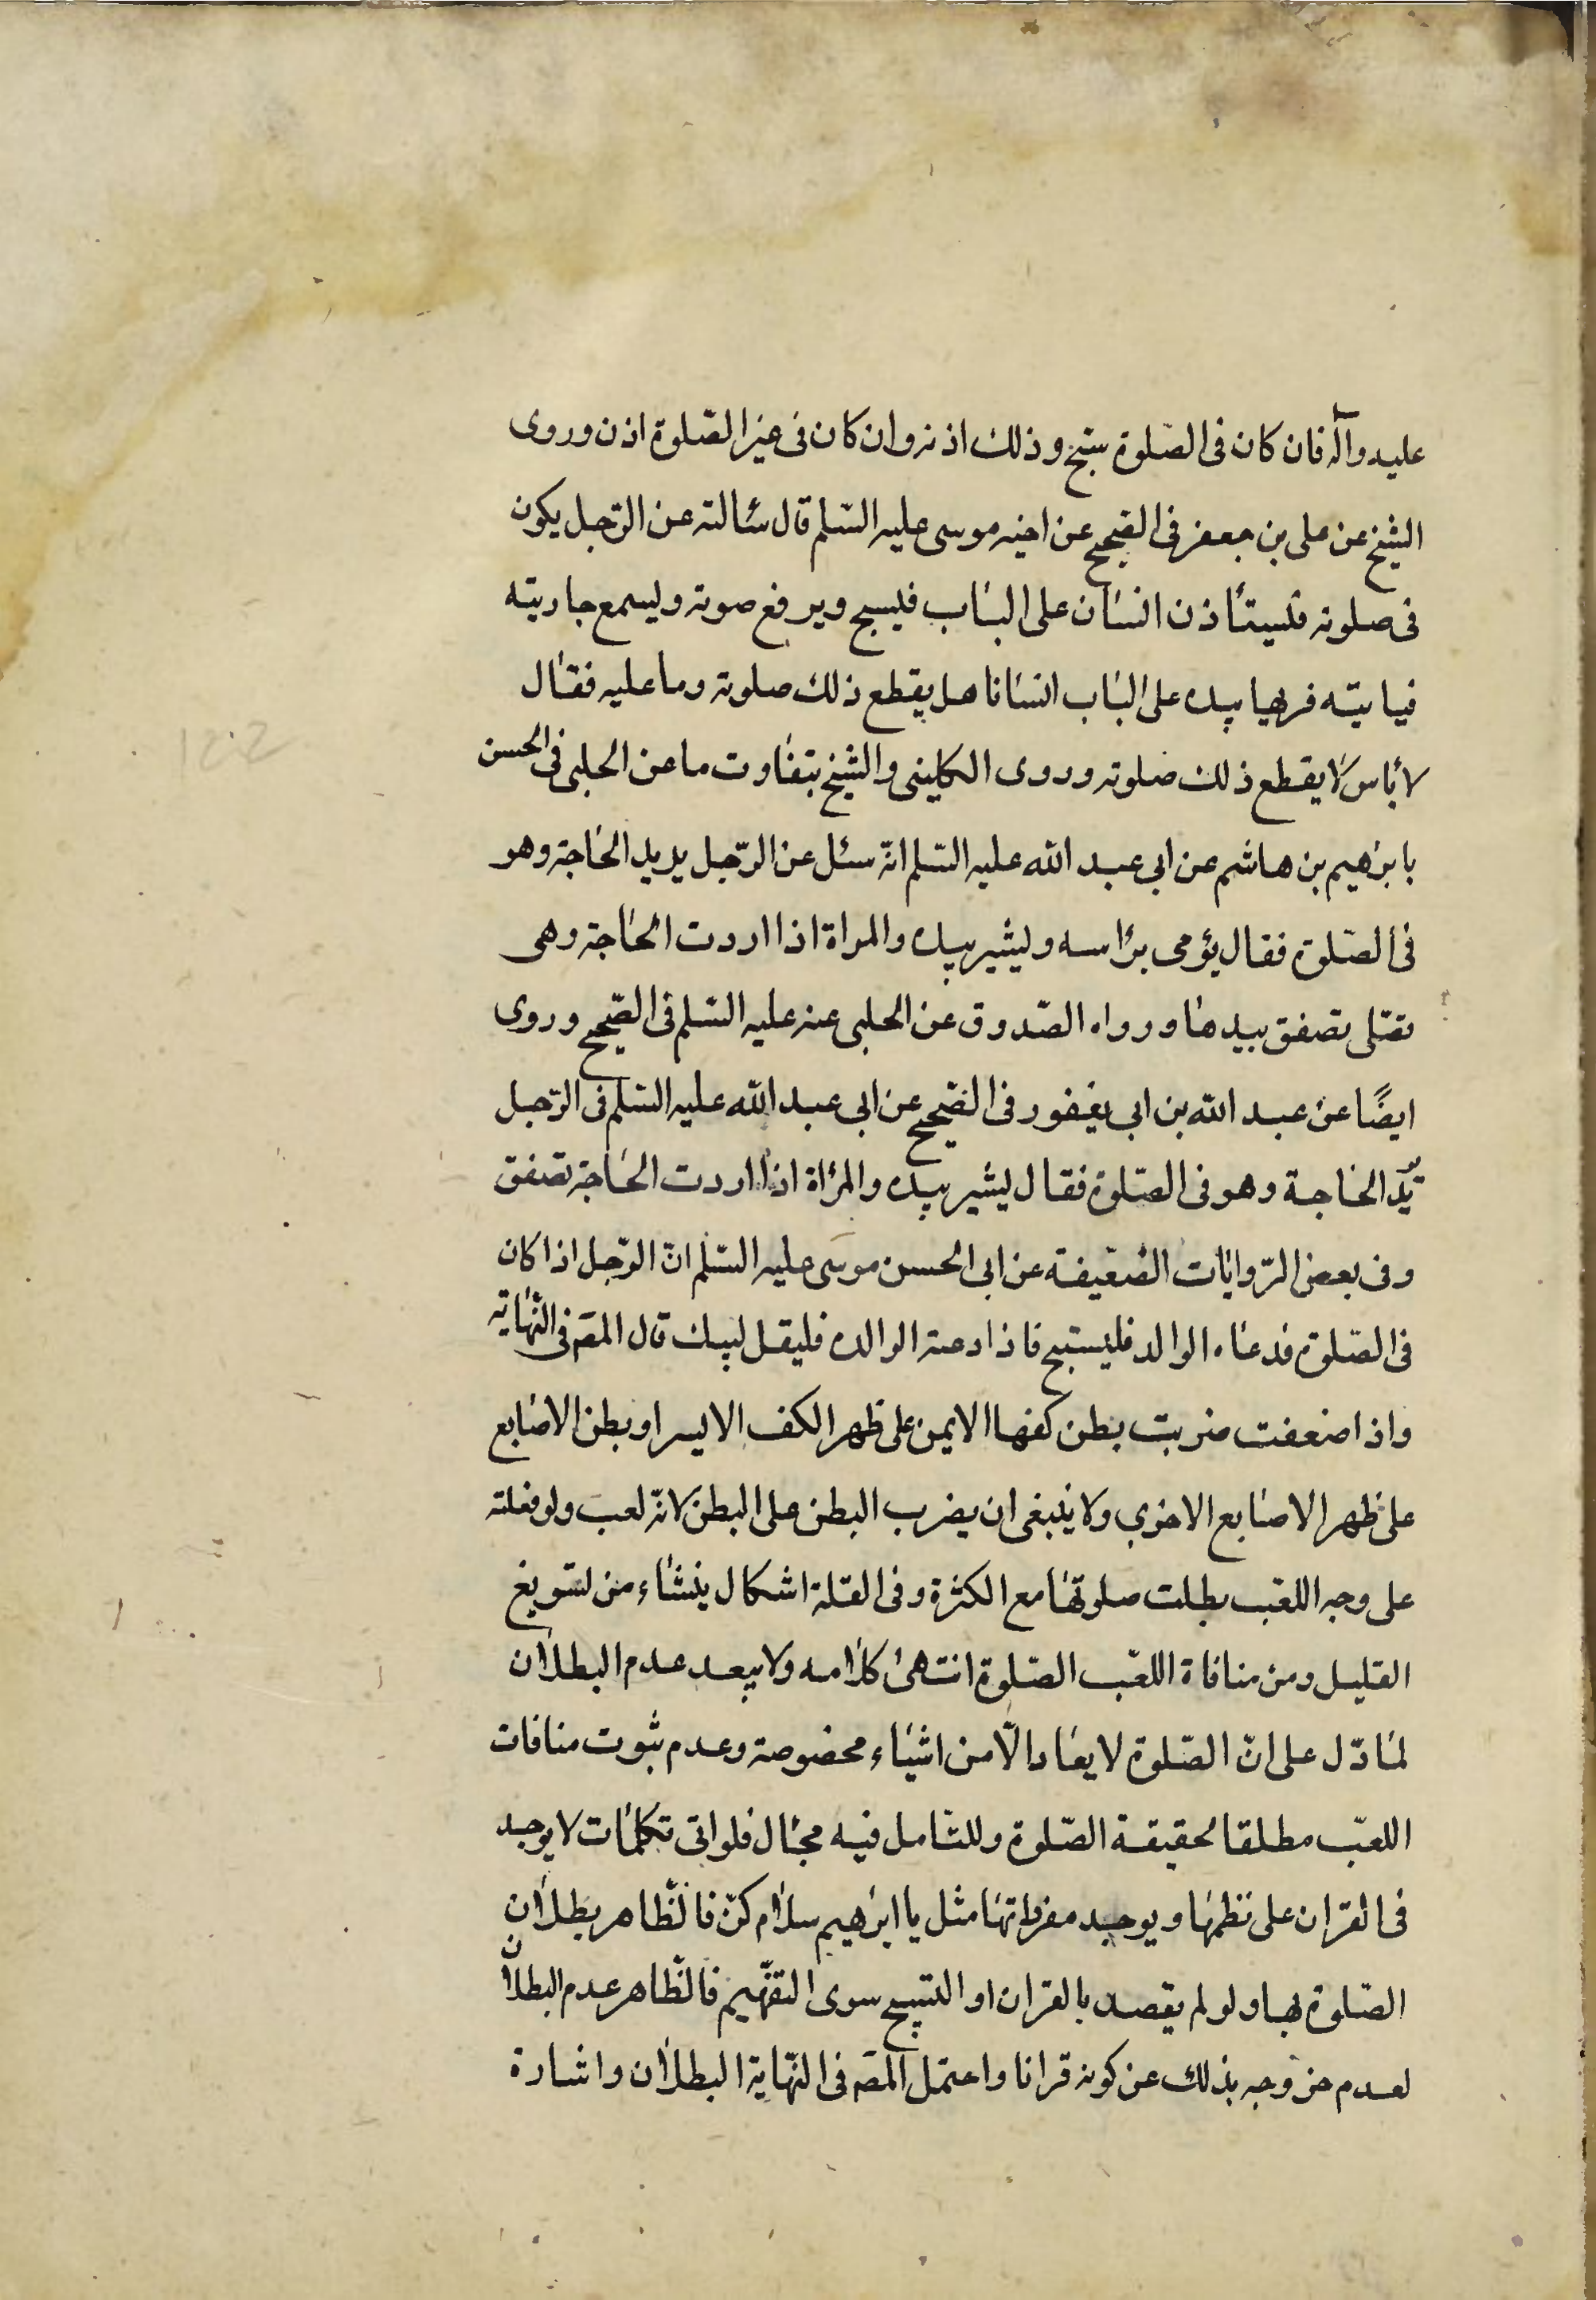 عليه وآله فان كان فى الصّلوة سبّح وذلك اذنه وان كان فى غير الصّلوة اذن وروى
الشيخ عن على بن جعفر فى الصّحيح عن اخيه موسى عليه السّلم قال سئالته عن الرّجل يكون
فى صلوته فليستأذن انسان على الباب فيسبح ويرفع صوته وليسمع جاريته
فياتيه فيريها بيده على الباب انسانا هل يقطع ذلك صلوته وما عليه فقال
لا باس لا يقطع ذلك صلوته وروى الكلينى والشيخ بتفاوت ما عن الحلبى فى الحسن
بابرهيم بن هاشم عن ابى عبد الله عليه السّلم انّه سئل عن الرّجل يريد الحاجة وهو
فى الصّلوة فقال يؤمى براسه وليشير بيده والمراة اذا اردت الحاجة وهى
تصّلى تصفق بيدها ورواه الصّدوق عن الحلبى عنه عليه السّلم فى الصّحيح وروى
ايضًا عن عبد الله بن ابى يعفور فى الصّحيح عن ابى عبد الله عليه السّلم فى الرّجل
يريد الحاجة وهو فى الصّلوة فقال ليشير بيده والمراة اذا اردت الحاجة تصفق
وفى بعض الرّوايات الضّعيفة عن ابى الحسن موسى عليه السّلم انّ الرّجل اذا كان
فى الصّلوة فدعاه الوالد فليستبح فاذا دعته الوالده فليقل لبيك قال المصّ فى النّهاية
واذا صفقت ضربت بطن كفها الايمن على ظهر الكف الايسر او بطن الاصابع
على ظهر الاصابع الاخرى ولا ينبغى ان يضرب البطن على البطن لانّه لعب ولو فعلته
على وجه اللعب بطلت صلوتها مع الكثرة وفى القلة اشكال ينشاء من تسويغ
القليل ومن منافاة اللعب الصّلوة انتهى كلامه ولا يبعد عدم البطلان
لما دّل على انّ الصّلوة لا يعاد الّا من اشياء مخصوصة وعدم ثبوت منافات
اللعب مطلقا لحقيقة الصّلوة وللتامل فيه مجال فلو اتى تكلمات لا يوجد
فى القران على نظمها ويوجد مفرداتها مثل يا ابرهيم سلام كن فالظّاهر بطلان
الصّلوة بها ولو لم يقصد بالقران او التسبيح سوى التفّهيم فالظّاهر عدم البطلان
لعدم خروجه بذلك عن كونه قرانا واحتمل المصّ فى النّهاية البطلان واشارة